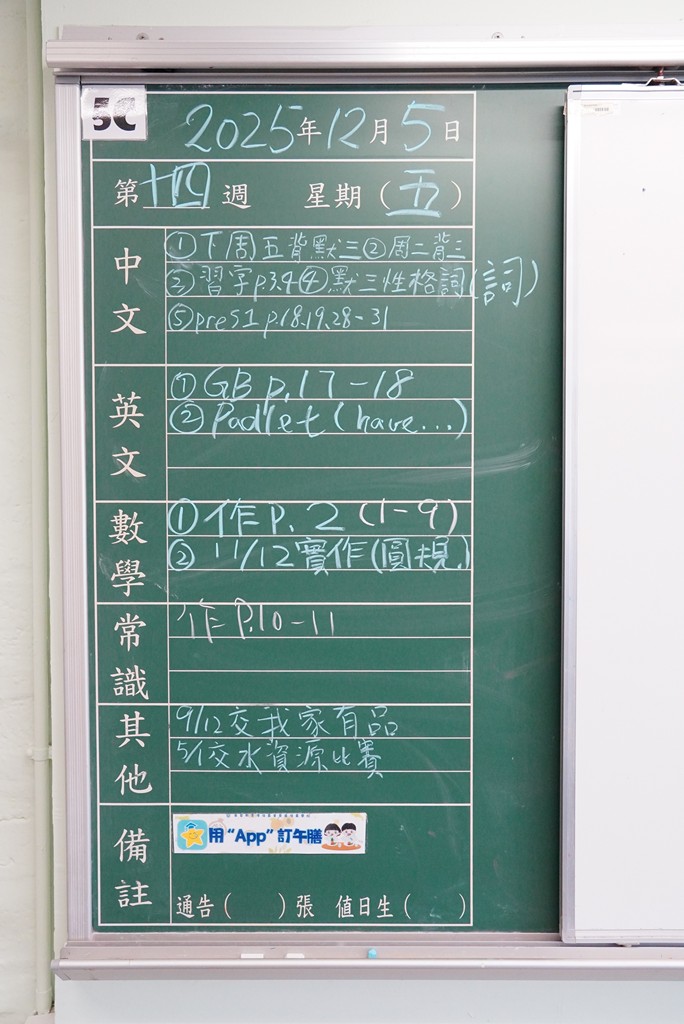 5C
2025年12月5日
第十四週 星期(五)
中文
①下周五背默三②周二背三
③習字p.3.4④默三性格詞(詞)
⑤preS1 p.18.19.28-31
英文
①GB p.17-18
②Padlet (have...)
數學
①作P.2 (1-9)
②11/12實作(圓規)
常識
作P.10-11
其他
9/12交我家有品
5/1交水資源比賽
備註
用“App”訂午膳
通告( )張 值日生( )